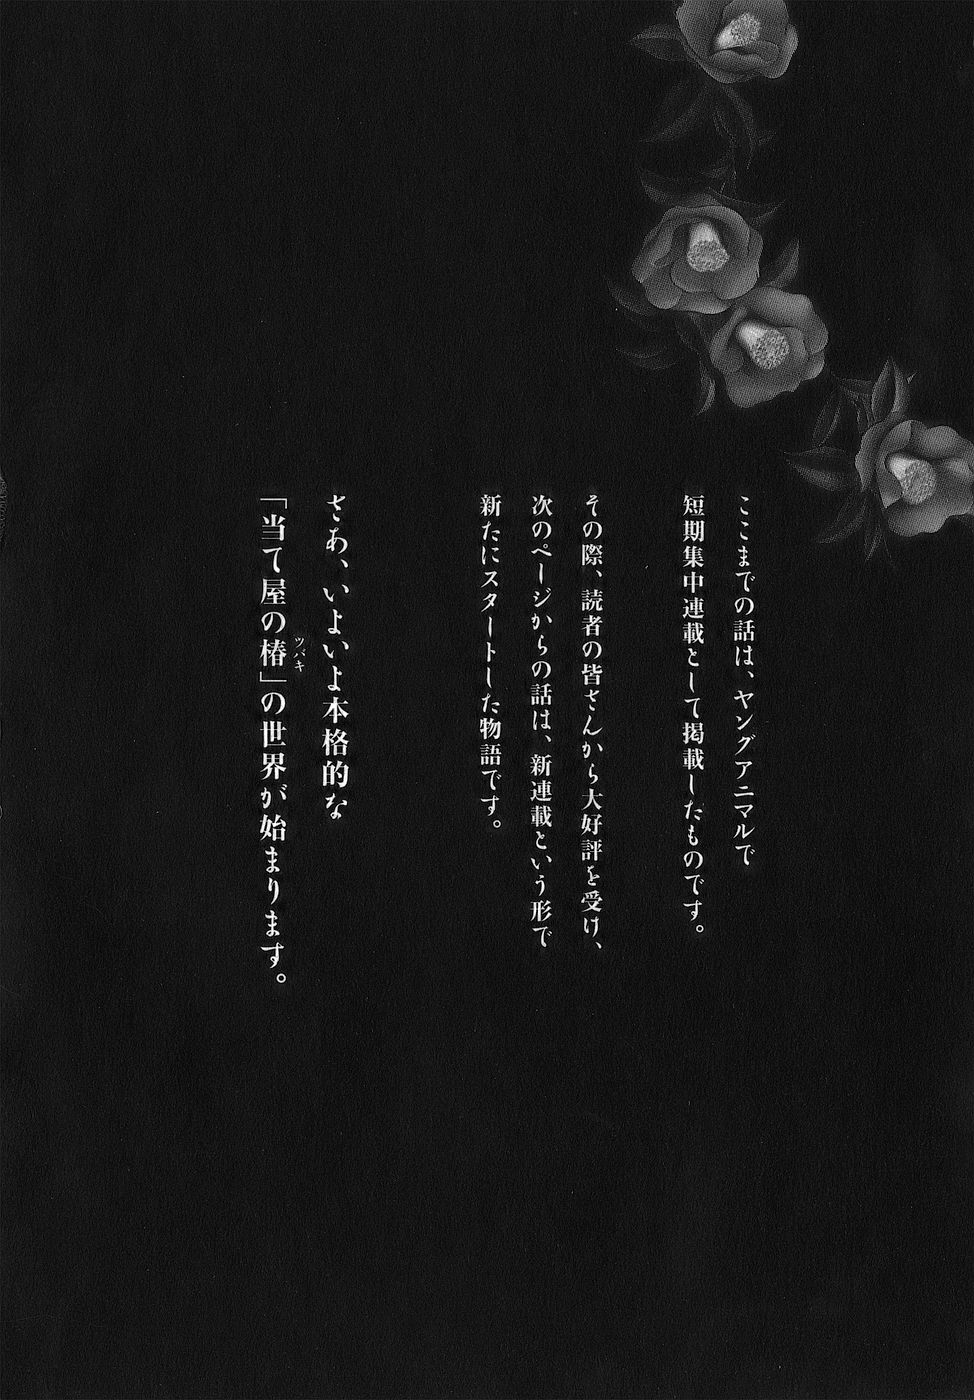 ここまでの話は、ヤングアニマルで
短期集中連載として掲載したものです。
その際、読者の皆さんから大好評を受け、
次のページからの話は、新連載という形で
新たにスタートした物語です。
さあ、いよいよ本格的な
「当て屋の椿」の世界が始まります。
ツバキ